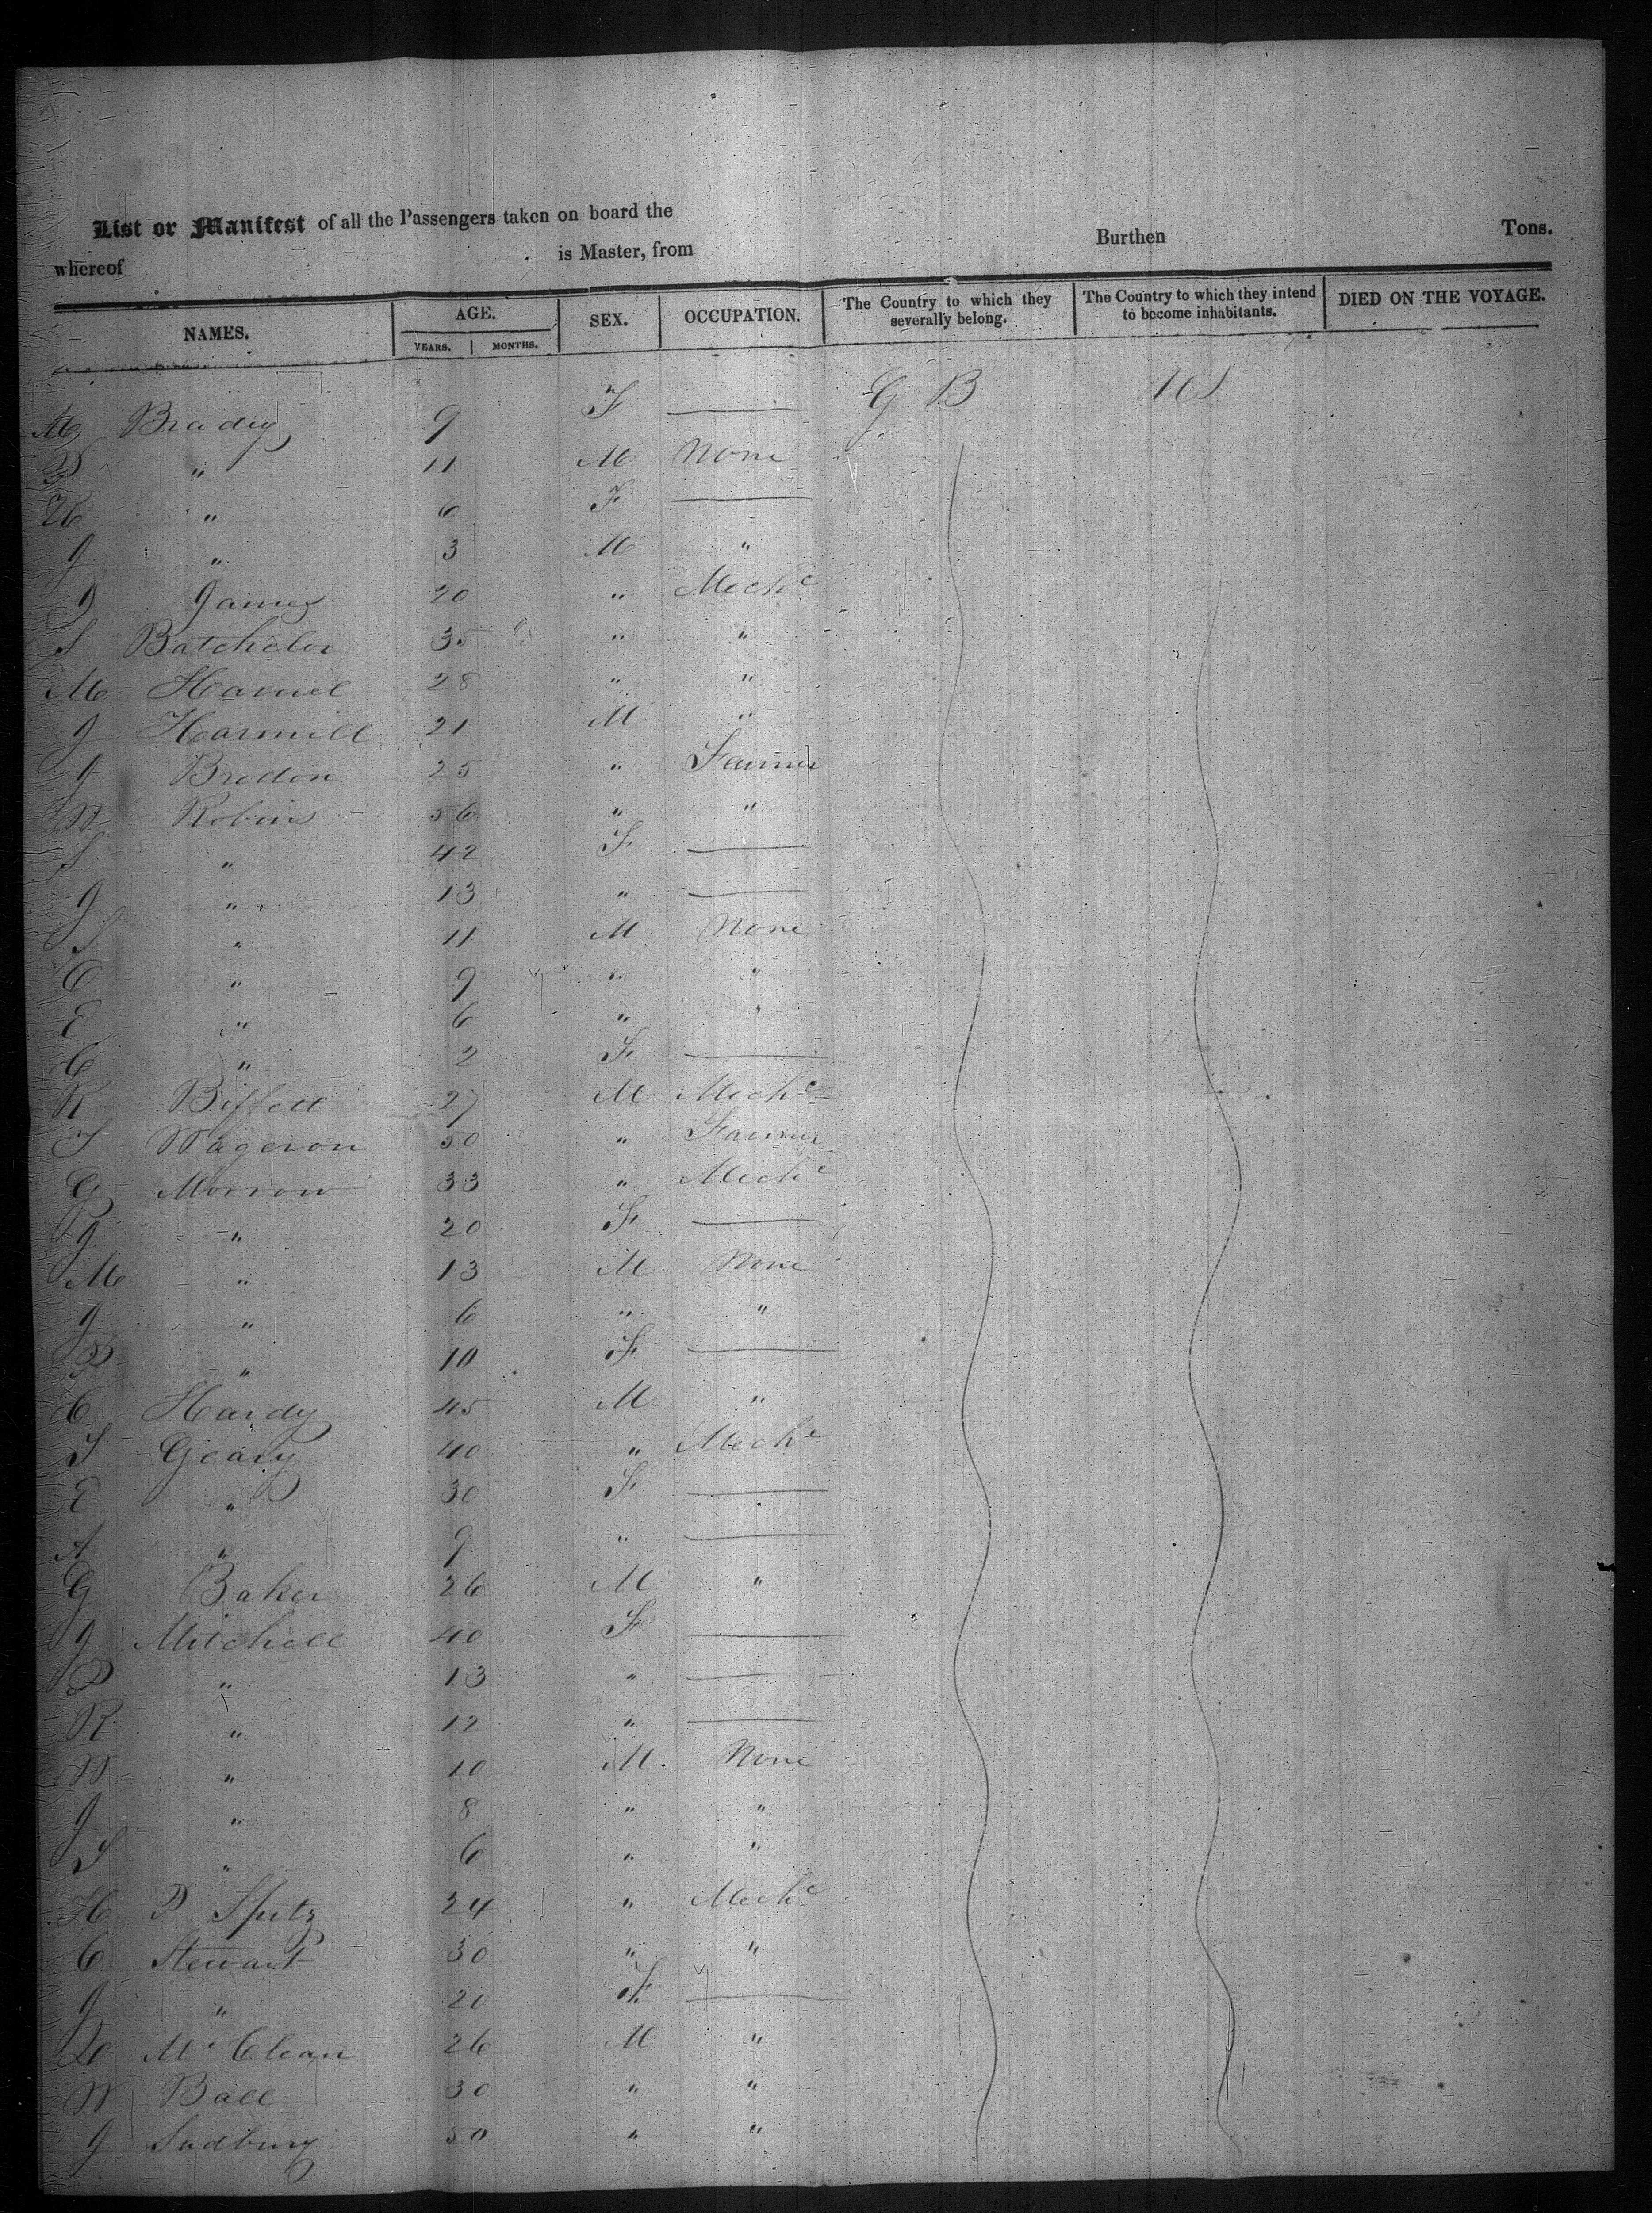 List or Manifest of all the Passengers taken on board the Burthen Tons.
whereof is Master, from
NAMES. AGE. SEX. OCCUPATION. The Country to which they severally belong. The Country to which they intend to become inhabitants. DIED ON THE VOYAGE.
YEARS. MONTHS.
M Brady 9 F — G B U S
P " 11 M None
H " 6 F —
J " 3 M "
J James 20 " Mechc
S Batchelor 35 " "
M Hamel 28 " "
J Harmill 21 M "
J Bredon 25 " Farmer
W Robins 56 " "
S " 42 F —
J " 13 " —
S " 11 M None
C " 9 " "
E " 6 " "
C " 2 F —
R Biffell 27 M Mechc
T Wageron 50 " Farmer
G Morrow 33 " Mechc
J " 20 F —
M " 13 M None
J " 6 " "
P " 10 F —
C Hardy 45 M "
S Geary 40 " Mechc
E " 30 F —
A " 9 " —
G Baker 26 M "
J Mitchell 40 F —
P " 13 " —
R " 12 " —
W " 10 M. None
J " 8 " "
S " 6 " "
H P Spitz 24 " Mechc
C Stewart 30 " "
J " 20 F —
D Mc Clean 26 M "
W Ball 30 " "
J Sudbury 50 " "